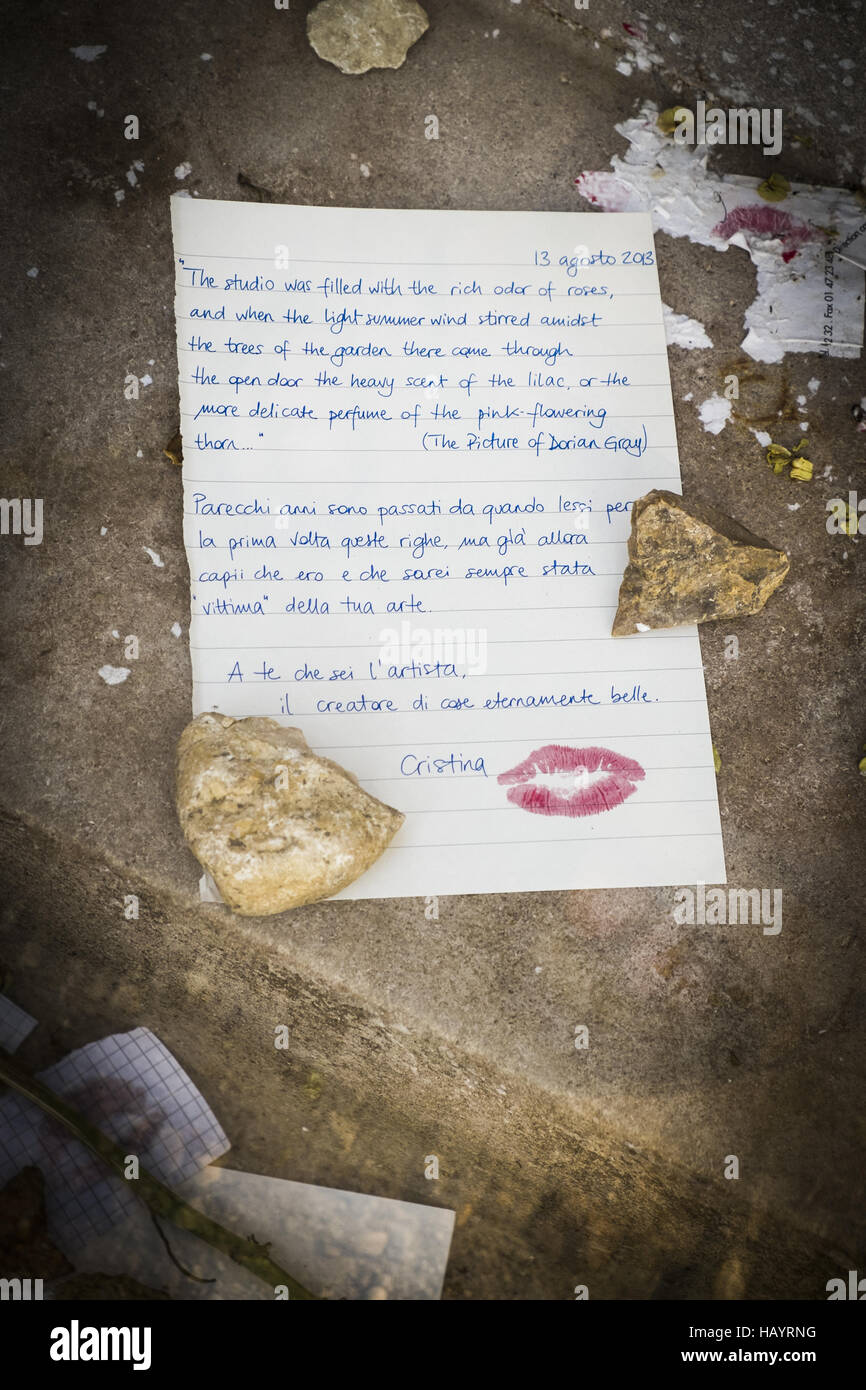 13 agosto 2013
"The studio was filled with the rich odor of roses,
and when the light summer wind stirred amidst
the trees of the garden there came through
the open door the heavy scent of the lilac, or the
more delicate perfume of the pink-flowering
thorn..." (The Picture of Dorian Gray)
Parecchi anni sono passati da quando lessi per
la prima volta queste righe, ma già allora
capii che ero e che sarei sempre stata
"vittima" della tua arte.
A te che sei l'artista,
il creatore di cose eternamente belle.
Cristina
alamy stock photo
HAYRNG
www.alamy.com